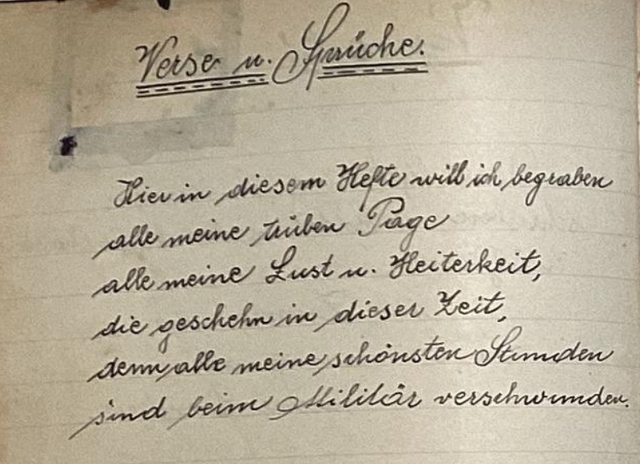 Verse u. Sprüche.
Hier in diesem Hefte will ich begraben
alle meine trüben Tage
alle meine Lust u. Heiterkeit,
die geschehn in dieser Zeit,
denn alle meine schönsten Stunden
sind beim Militär verschwunden.